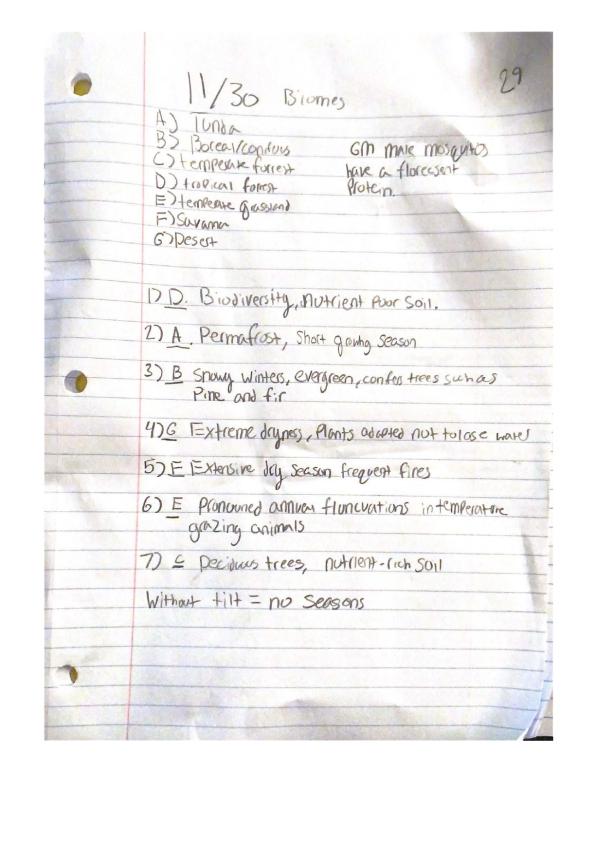 29
11/30 Biomes
A) Tunda
B) Boreal/confous
C) temperate forrest
D) tropical forrest
E) temperate grassland
F) Savanna
G) Desert
GM male mosquitos
have a florecsent
Protein.
1) D. Biodiversity, nutrient Poor Soil.
2) A. Permafrost, Short growing season
3) B Snowy winters, evergreen, confes trees such as
Pine and fir
4) G Extreme dryness, Plants adapted not to lose water
5) F Extensive dry season frequent fires
6) E Pronouned annual flunctuations in temperature
grazing animals
7) C Deciduus trees, nutrient-rich Soil
Without tilt = no Seasons